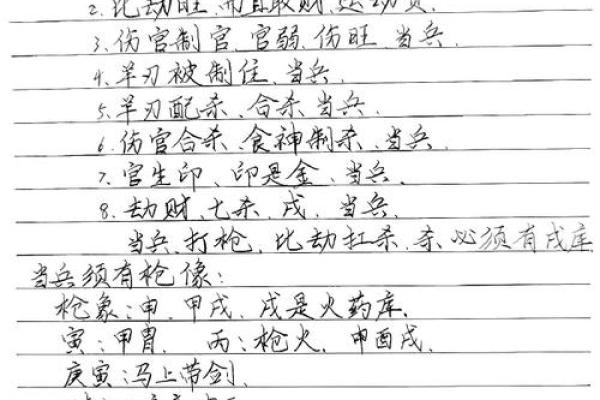 2. 比劫旺,而且取财,运动员.
3. 伤官制官,官弱,伤旺,当兵.
4. 羊刃被制住,当兵.
5. 羊刃配杀、合杀当兵.
6. 伤官合杀、食神制杀、当兵.
7. 官生印、印是金、当兵.
8. 劫财、七杀、戌、当兵.
当兵,打枪,比劫扛杀,杀必须有戌库
当兵须有枪像:
枪象:申、甲戌、戌是火药库.
寅:甲胄, 丙:枪火, 申酉戌.
庚寅:马上带剑.